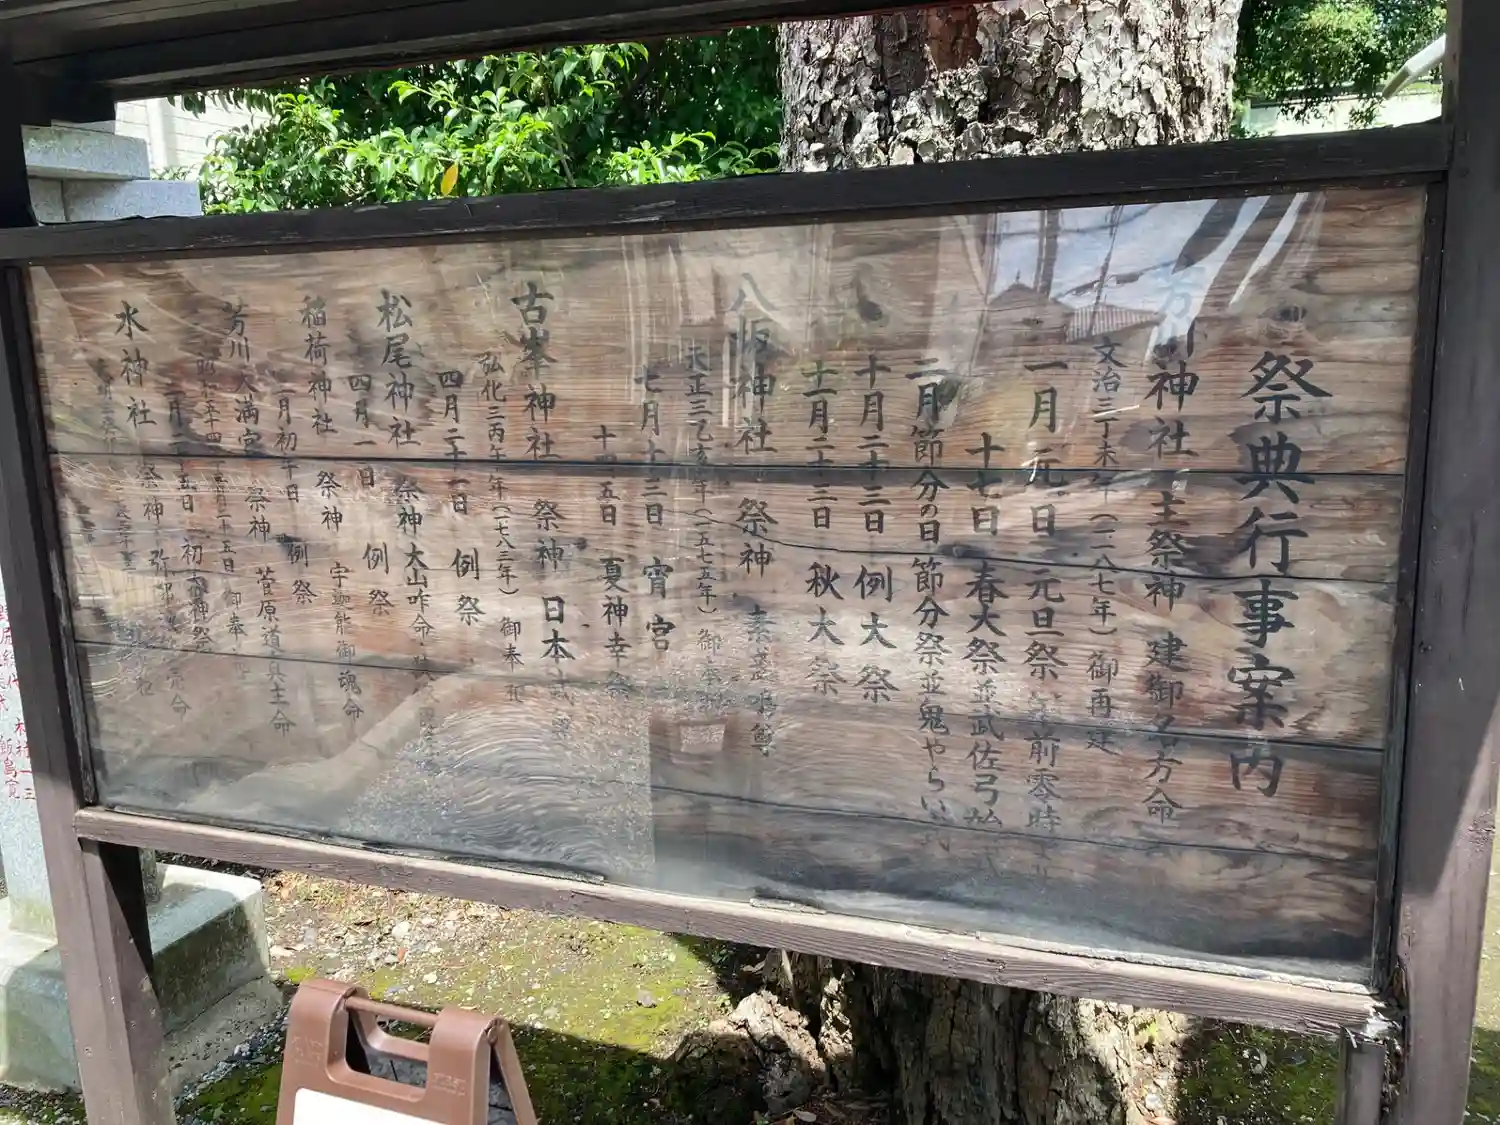 祭典行事案内
芳川神社 主祭神 建御名方命
文治三丁未年(一一八七年)御再建
一月元旦 元旦祭 午前零時
十七日 春大祭並武佐弓始式
二月節分の日 節分祭並鬼やらい式
十月二十三日 例大祭
十一月二十三日 秋大祭
八坂神社 祭神 素盞嗚尊
天正三乙亥年(一五七五年)御奉祀
七月十三日 宵宮
十五日 夏神幸祭
古峯神社 祭神 日本武尊
弘化三丙午年(七八三年)御奉祀
四月二十一日 例祭
松尾神社 祭神 大山咋命
四月一日 例祭
稲荷神社 祭神 宇迦能御魂命
二月初午日 例祭
芳川天満宮 祭神 菅原道真主命
昭和五十四年 二十五日 御奉祀
二月二十五日 初天神祭
水神社 祭神